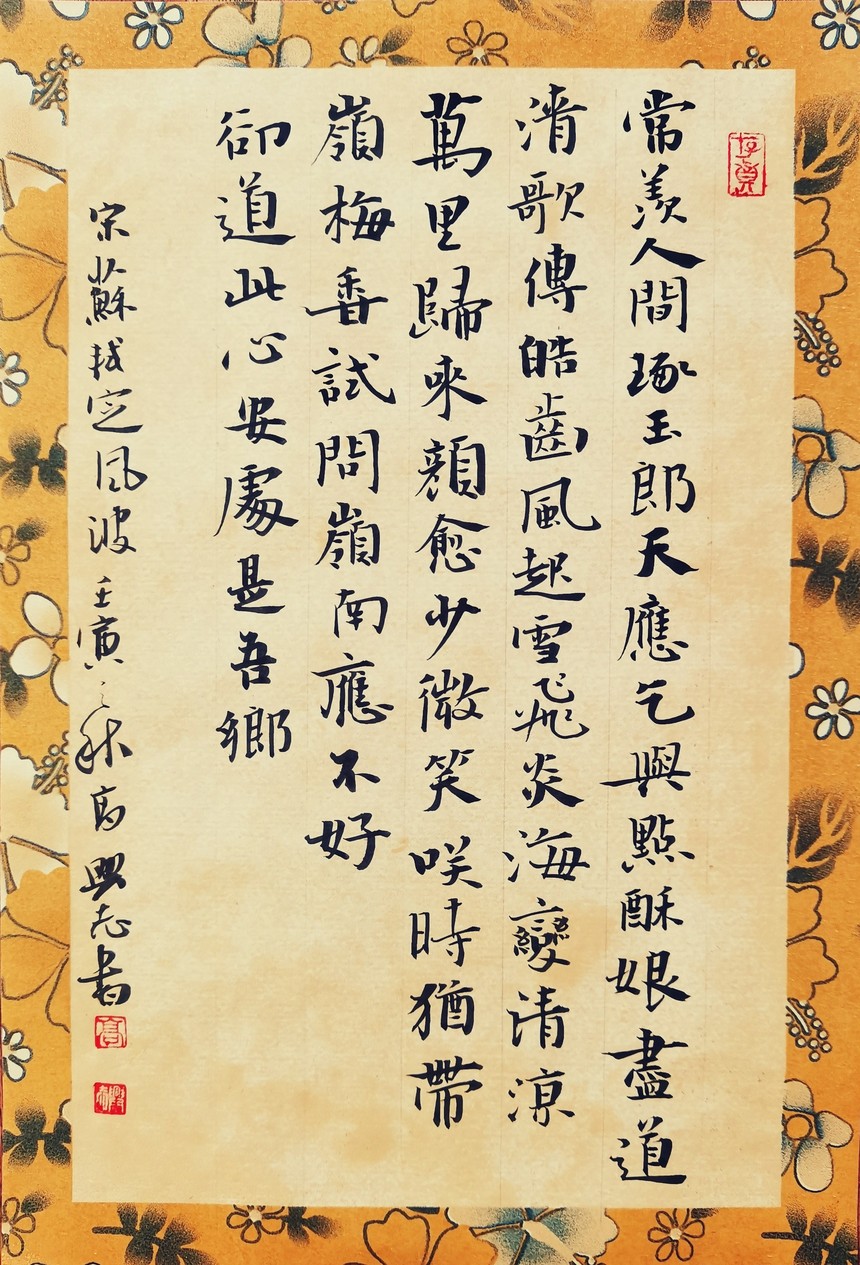 常羨人間琢玉郎天應乞與點酥娘盡道
清歌傳皓齒風起雪飛炎海變清涼
萬里歸來顏愈少微笑咲時猶帶
嶺梅香試問嶺南應不好
卻道此心安處是吾鄉
宋蘇軾定風波壬寅之秋高興志書
高